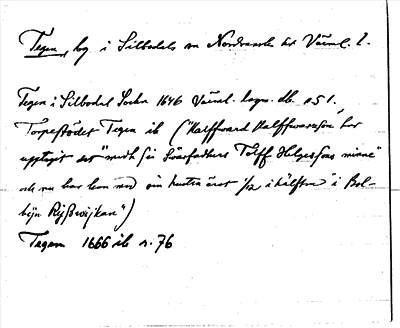 Tegen, hg i Silbodals sn Nordmarks hd Värml. l.
Tegen i Silbodal Sochn 1646 Värml. lagm. db. n 51,
Torpestödet Tegen ib ("Halffward Halffwarsson har
upptagit det "medh sin Swärfadhers Tolff Helgessons minne"
och nu bar hon med sin hustru
i hälften" i Bol-
byn Rijßwijkan")
Tegen 1666 ib n. 76